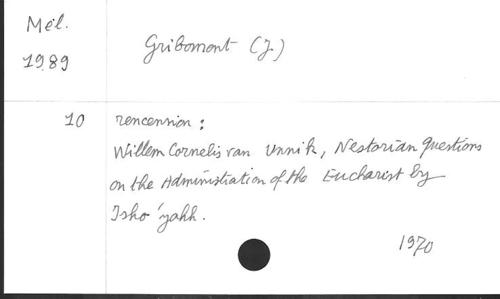 Mél.
1989
Gribomont (J.)
10
rencension :
Willem Cornelis van Unnik, Nestorian Questions
on the Administration of the Eucharist by
Isho 'yahh.
1970